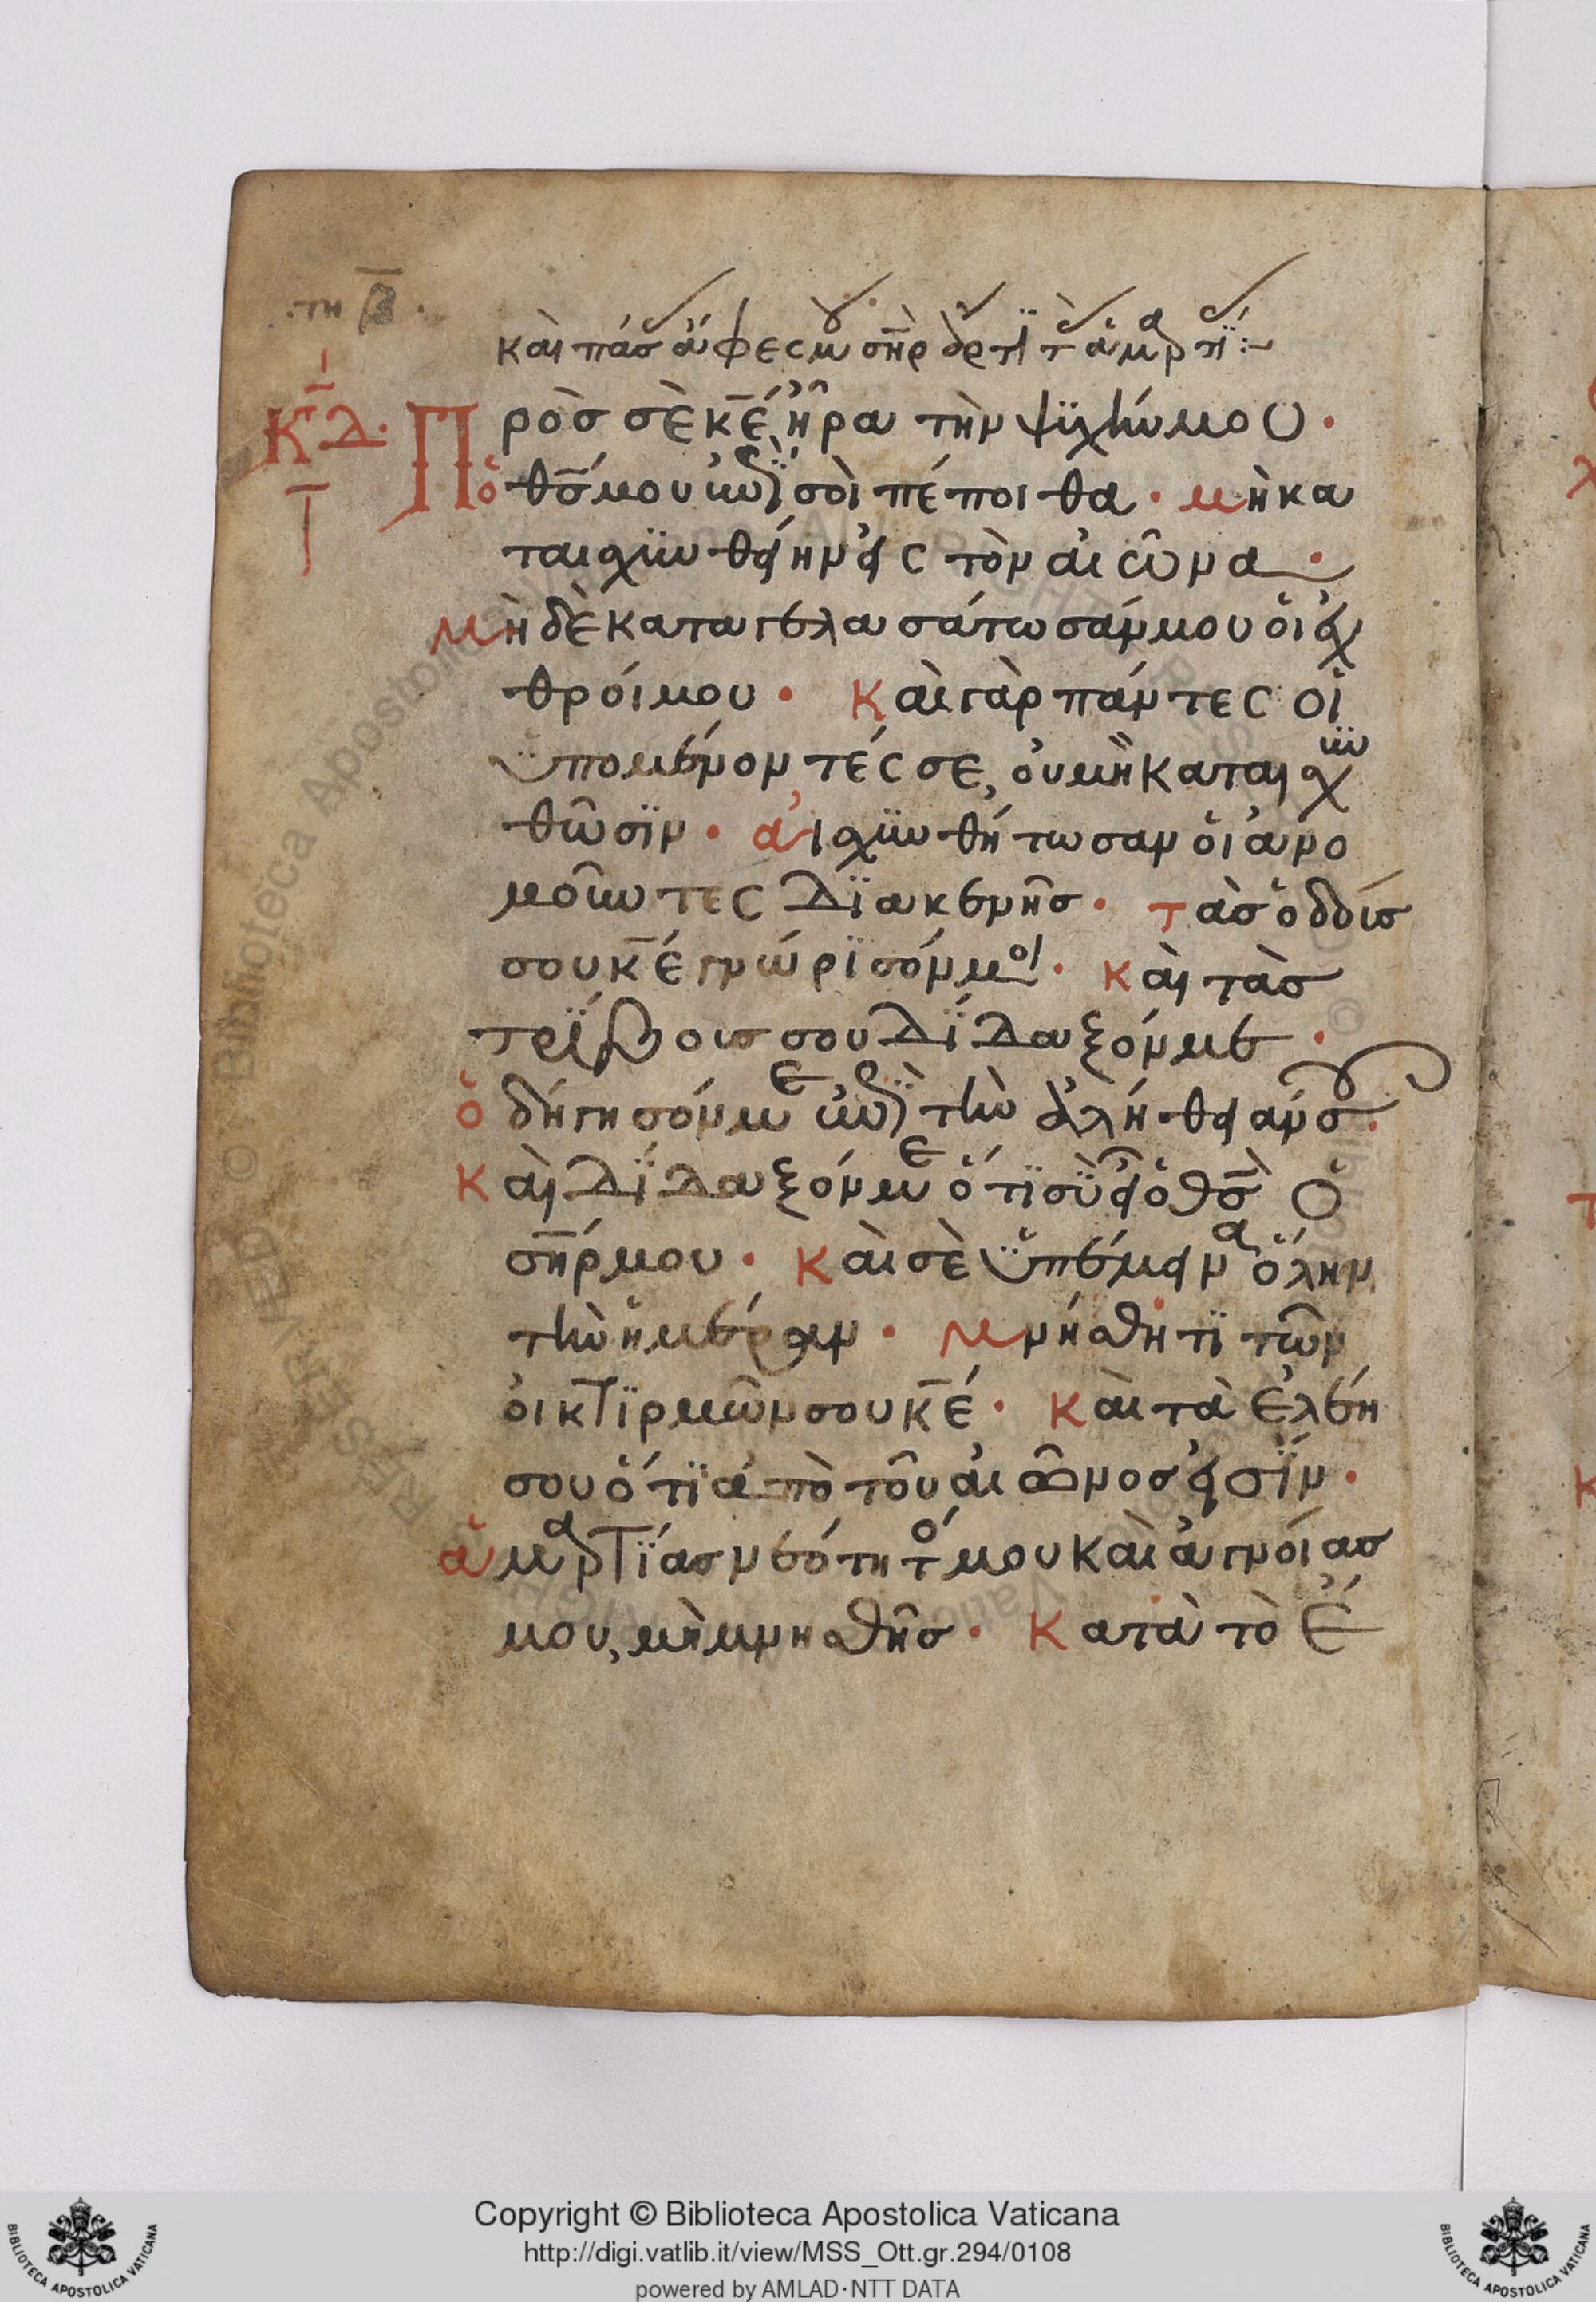 ·τη β·
καὶ πάσ ἄφες μου σῆρ
ΚΔ· Προσ σὲ κ̅ε̅ ἦρα τὴν ψϋχήν μου·
ὁ θ̅σ̅ μου ἐπῒ σοὶ πέποιθα· μὴ κα
ταισχϋνθείην εἰς τὸν αἰῶνα·
Μὴ δὲ καταγελασάτωσάν μου ὁι ἐχ
θρόι μου· Καὶ γὰρ πάντες οἱ
ϋπομένοντές σε, ὀυ μὴ καταισχϋν
θῶσϊν· ἀισχϋνθήτωσαν ὁι ἀνο
μοῦντες δϊακενῆσ· τὰσ ὁδούσ
σου κ̅ε̅ γνώρϊσόν μοι· καὶ τὰσ
τρίβουσ σου δΐδαξόν με·
ὁδήγησόν με ἐπῒ τὴν ἀλήθειάν σου·
Καὶ δΐδαξόν με ὅτϊ σὺ εἶ ὁ θ̅σ̅ ὁ
σ̅η̅ρ̅ μου· Καὶ σὲ ϋπέμεινα ὅλην
τὴν ἡμέραν· Μνήσθητϊ τῶν
ὀικτϊρμῶν σου κ̅ε̅· Καὶ τὰ ἐλέη
σου ὅτϊ ἀπὸ τοῦ αἰῶνοσ εἰσΐν·
ἁμαρτΐασ νεότητόσ μου καὶ ἀγνοίασ
μου, μὴ μνησθῆσ· Κατὰ τὸ ἔ
Copyright © Biblioteca Apostolica Vaticana
http://digi.vatlib.it/view/MSS_Ott.gr.294/0108
powered by AMLAD·NTT DATA
BIBLIOTECA APOSTOLICA VATICANA
BIBLIOTECA APOSTOLICA VATICANA